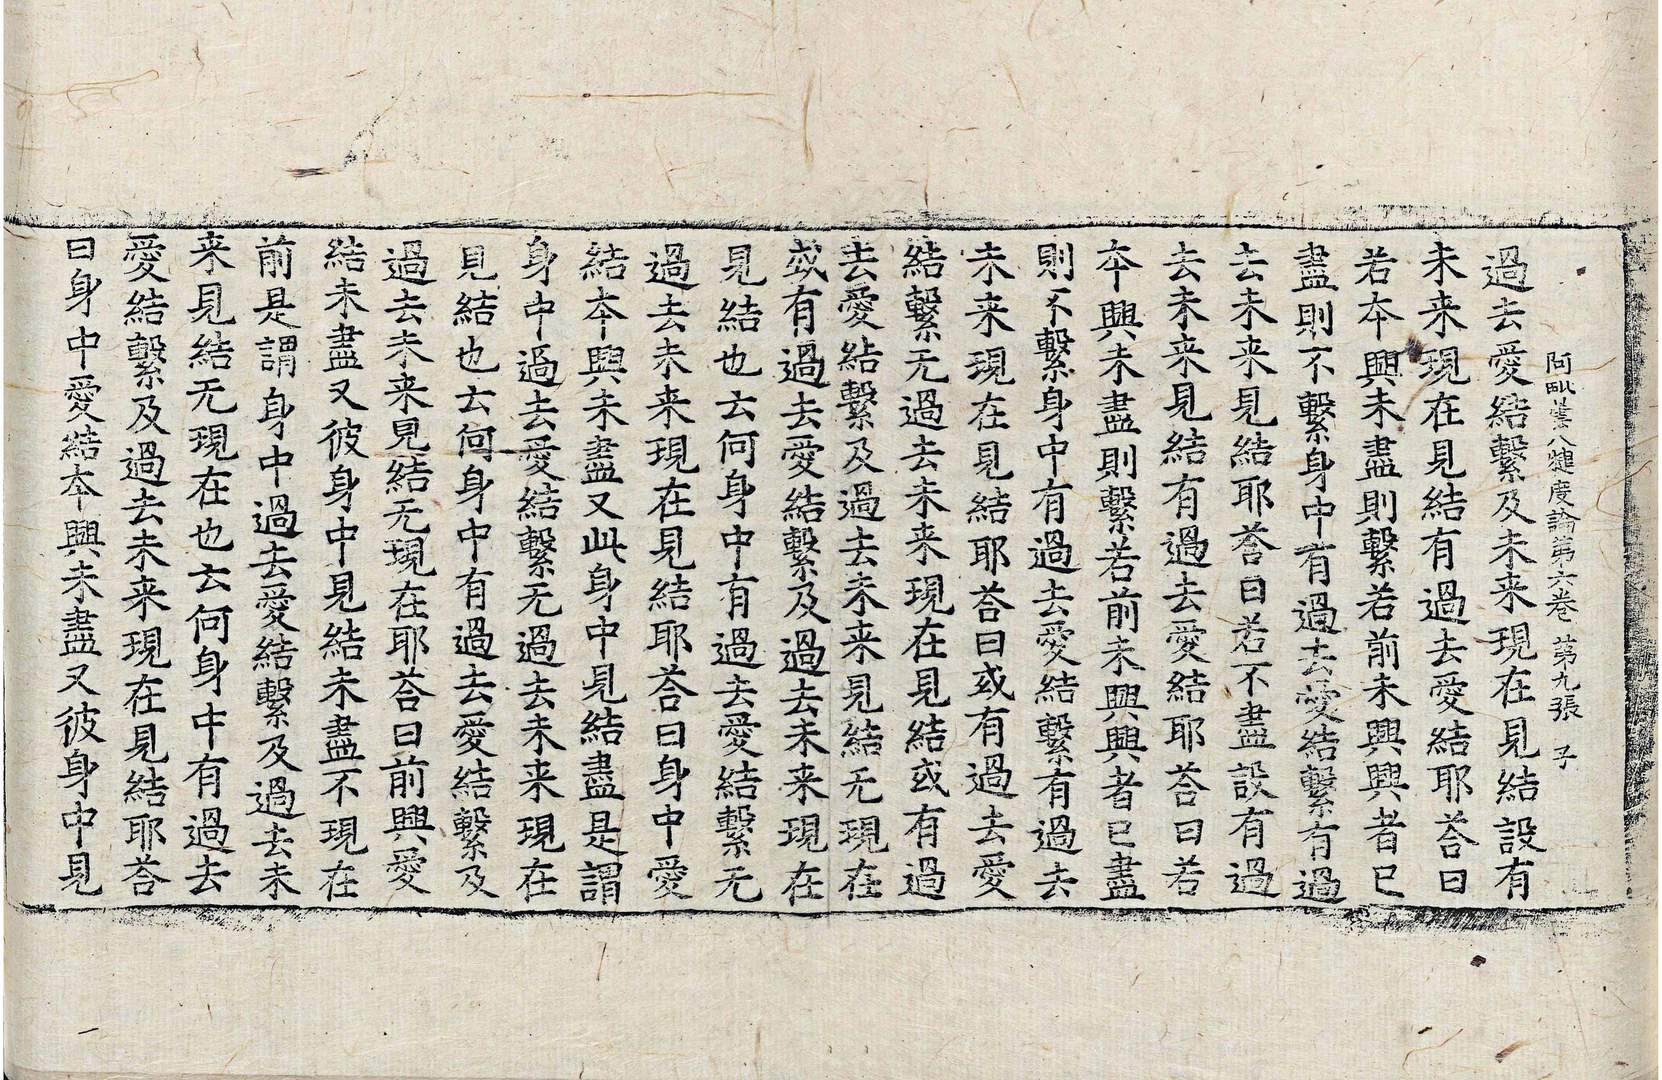 阿毗曇八犍度論第六卷 第九張 子
過去愛結繫及未来現在見結設有
未来現在見結有過去愛結耶荅曰
若夲興未盡則繫若前未興興者已
盡則不繫身中有過去愛結繫有過
去未来見結耶荅曰若不盡設有過
去未来見結有過去愛結耶荅曰若
夲興未盡則繫若前未興興者已盡
則不繫身中有過去愛結繫有過去
未来現在見結耶荅曰或有過去愛
結繫无過去未来現在見結或有過
去愛結繫及過去未来見結无現在
或有過去愛結繫及過去未来現在
見結也云何身中有過去愛結繫无
過去未来現在見結耶荅曰身中愛
結夲興未盡又此身中見結盡是謂
身中過去愛結繫无過去未来現在
見結也云何身中有過去愛結繫及
過去未来見結无現在耶荅曰前興愛
結未盡又彼身中見結未盡不現在
前是謂身中過去愛結繫及過去未
来見結无現在也云何身中有過去
愛結繫及過去未来現在見結耶荅
曰身中愛結夲興未盡又彼身中見